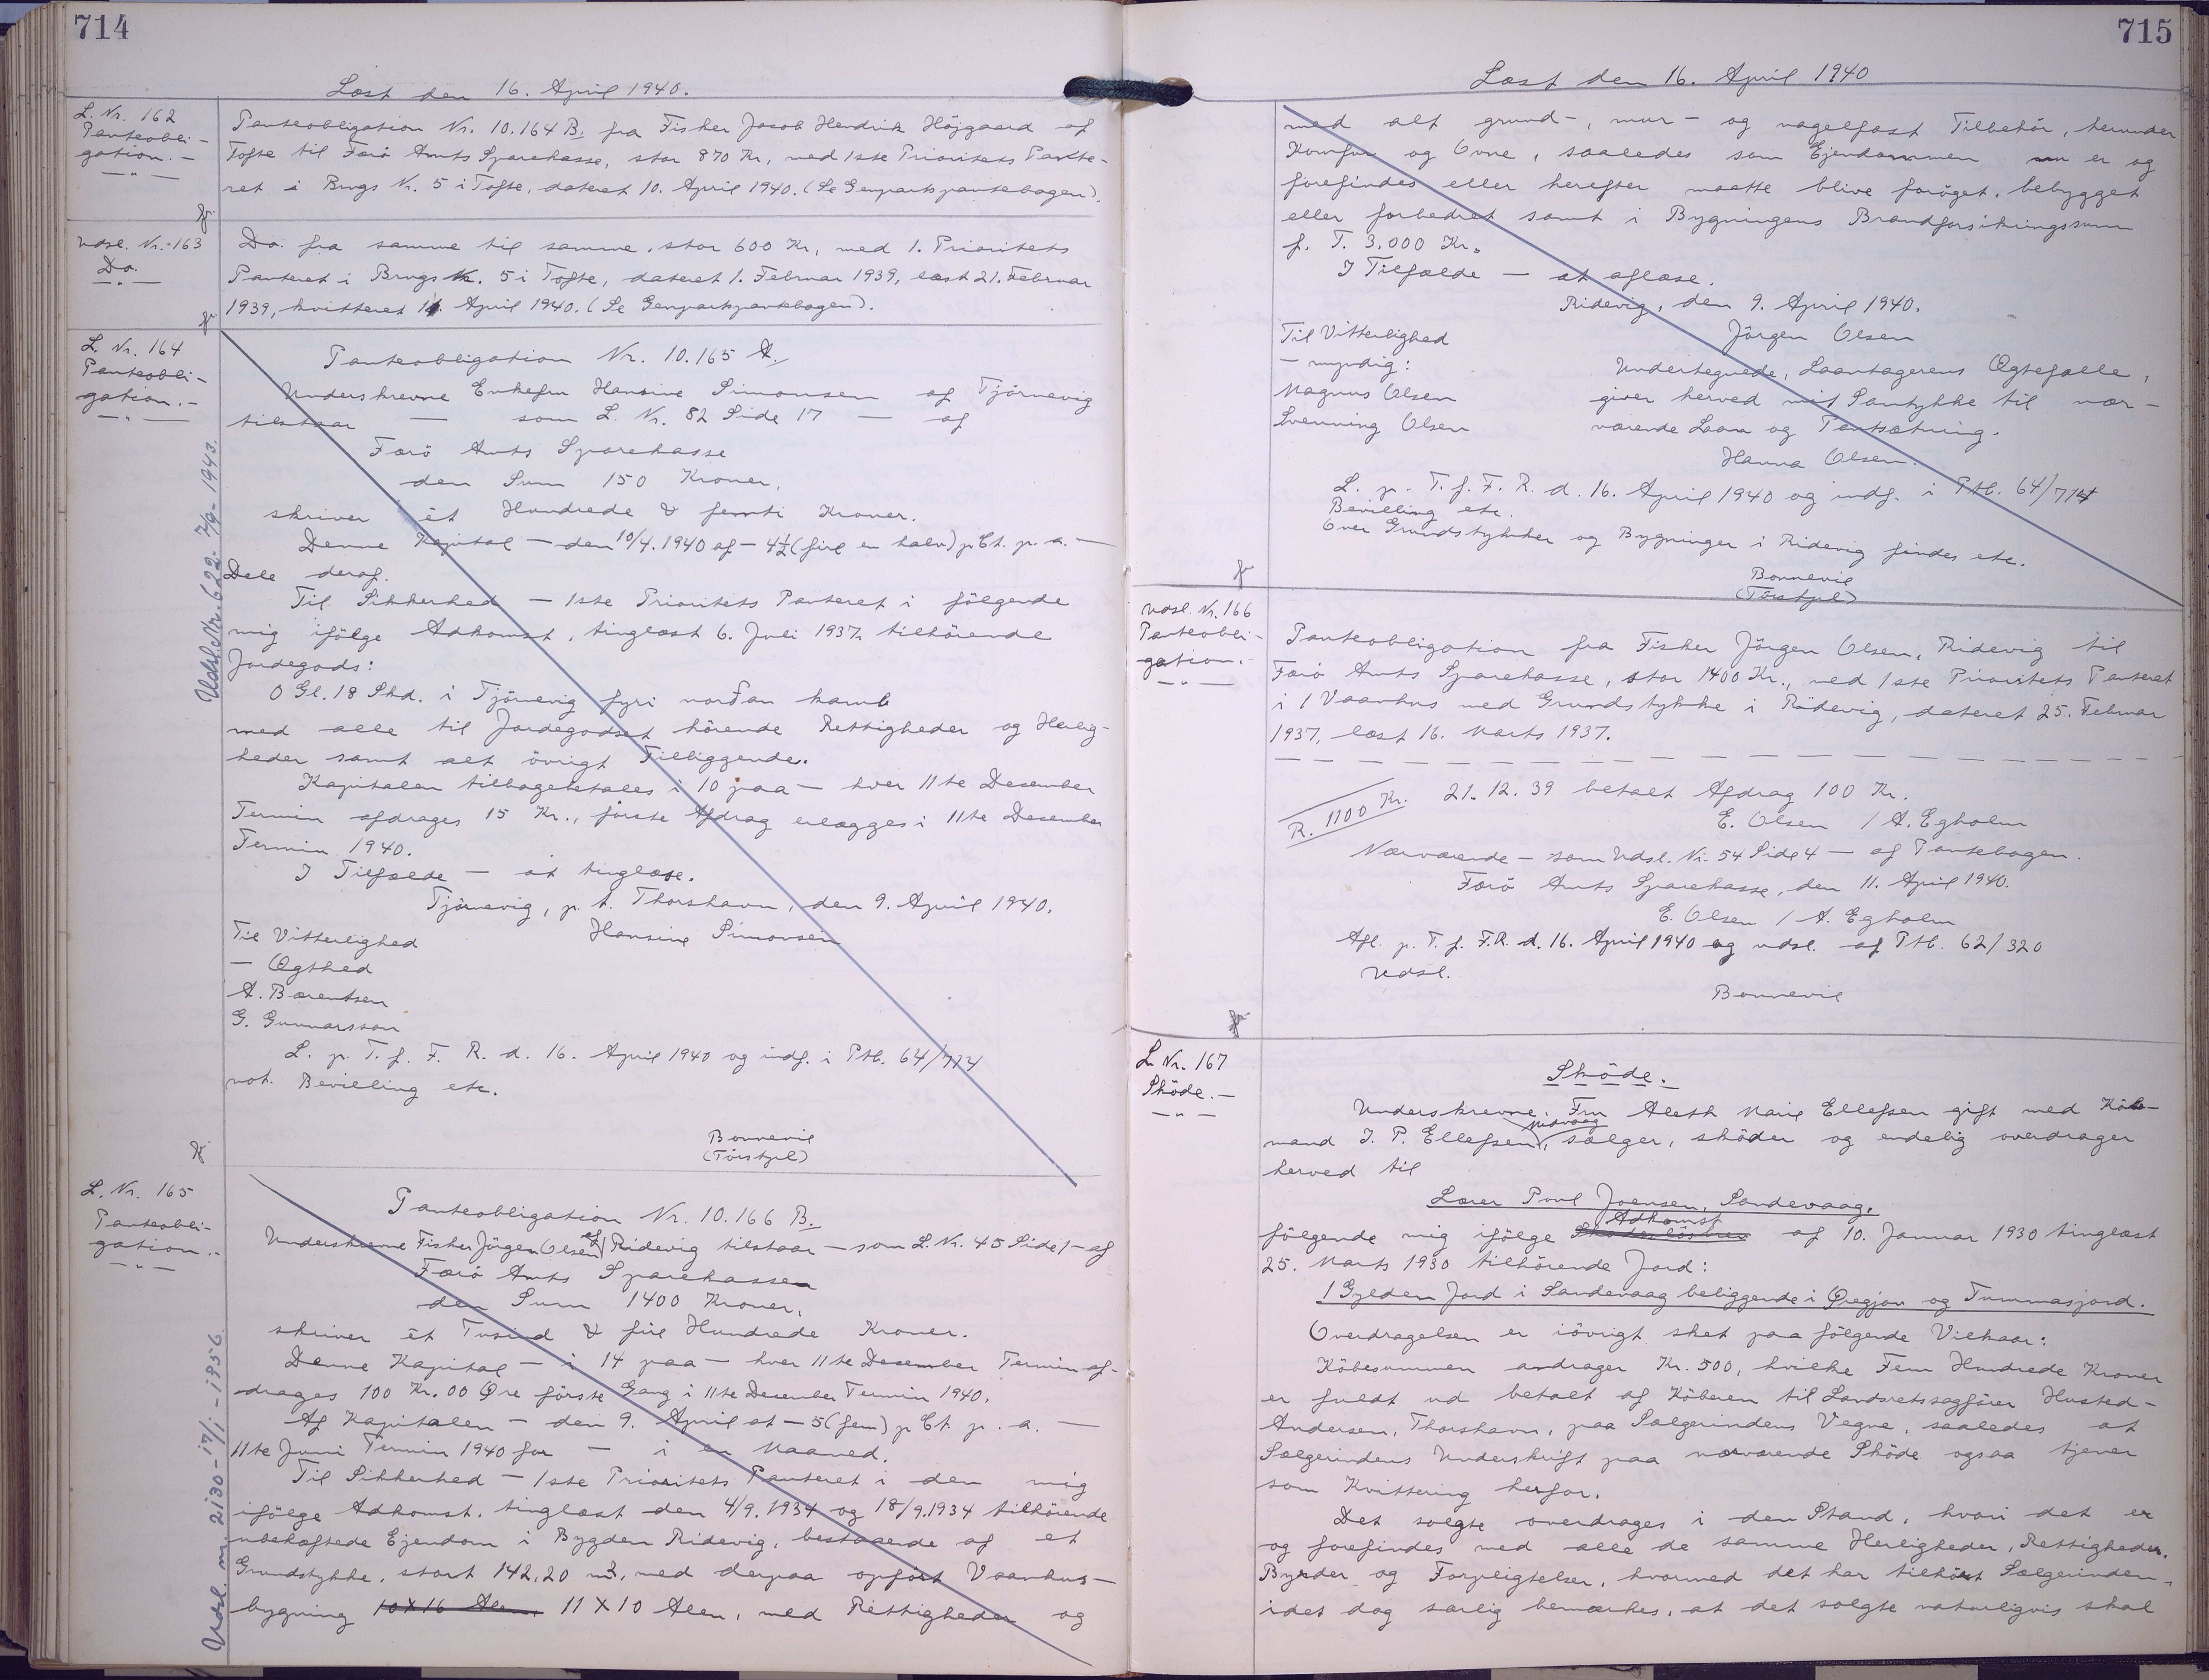 714
Læst den 16. April 1940.
L. Nr. 162
Panteobli-
gation.-
Panteobligation Nr. 10.164 B. fra Fisker Jacob Hendrik Höjgaard af
Tofte til Færö Amts Sparekasse, stor 870 Kr, med 1ste Prioritets Pante-
ret i Brugs Nr. 5 i Tofte, dateret 10. April 1940. (Se Genpartspantebogen).
Udsl. Nr. 163
Do.
Do. fra samme til samme, stor 600 Kr, med 1. Prioritets
Panteret i Brugs Nr. 5 i Tofte, dateret 1. Februar 1939, læst 21. Februar
1939, kvitteret 11. April 1940. (Se Genpartspantebogen).
L. Nr. 164
Panteobli-
gation.-
Udsl. Nr. 622- 7/9- 1943.
Panteobligation Nr. 10.165 A.
Underskrevne Enkefru Hansine Simonsen af Tjörnevig
tilstaar — som L. Nr. 82 Side 17 — af
Færö Amts Sparekasse
den Sum 150 Kroner,
skriver ét Hundrede & femti Kroner.
Denne Kapital — den 10/4. 1940 af — 4½ (fire en halv) p Ct. p. a. —
Dele deraf.
Til Sikkerhed — 1ste Prioritets Panteret i fölgende
mig ifölge Adkomst, tinglæst 6. Juli 1937 tilhörende
Jordegods:
0 Gl. 18 Skd. i Tjörnevig fyri norðan kamb
med alle til Jordegodset hörende Rettigheder og Herlig-
heder samt alt övrigt Tilliggende.
Kapitalen tilbagebetales i 10 paa — hver 11te Desember
Termin afdrages 15 Kr., förste Afdrag erlægges i 11te Desember
Termin 1940.
I Tilfælde — at tinglæse.
Tjörnevig, p. t. Thorshavn, den 9. April 1940.
Til Vitterlighed Hansine Simonsen
— Ægthed
A. Bærentsen
G. Gunnarsson
L. p. T. f. F. R. d. 16. April 1940 og indf. i Ptb. 64/714
not. Bevilling etc.
Bonnevie
(Törstjel)
L. Nr. 165
Panteobli-
gation.-
Udsl. nr. 2130 - 17/1 - 1956.
Panteobligation Nr. 10.166 B.
Underskrevne Fisker Jörgen Olsen af Ridevig tilstaar — som L. Nr. 45 Side 1 — af
Færö Amts Sparekassen
den Sum 1400 Kroner,
skriver ét Tusind & fire Hundrede Kroner.
Denne Kapital — i 14 paa — hver 11te Desember Termin af-
drages 100 Kr. 00 Øre förste Gang i 11te Desember Termin 1940.
Af Kapitalen — den 9. April at — 5 (fem) p Ct. p. a. —
11te Juni Termin 1940 for — i en Maaned.
Til Sikkerhed — 1ste Prioritets Panteret i den mig
ifölge Adkomst, tinglæst den 4/9. 1934 og 18/9. 1934 tilhörende
ubehæftede Ejendom i Bygden Ridevig, bestaaende af et
Grundstykke, stort 142,20 m2, med derpaa opfört Vaanhus-
bygning 10 X 16 Alen, 11 X 10 Alen, med Rettigheder og
715
Læst den 16. April 1940
med alt grund-, mur- og nagelfast Tilbehör, herunder
Komfur og Ovne, saaledes som Ejendommen nu er og
forefindes eller herefter maatte blive foröget, bebygget
eller forbedret samt i Bygningens Brandforsikringssum
p. T. 3.000 Kr.
I Tilfælde — at aflæse.
Ridevig, den 9. April 1940.
Til Vitterlighed Jörgen Olsen
— myndig: Undertegnede, Laantagerens Ægtefælle,
Magnus Olsen giver herved mit Samtykke til nær-
Svenning Olsen værende Laan og Pantsætning.
Hanna Olsen.
L. p. T. f. F. R. d. 16. April 1940 og indf. i Ptb. 64/714
Bevilling etc.
Over Grundstykker og Bygninger i Ridevig findes etc.
Bonnevie
(Törstjel)
Udsl. Nr. 166
Panteobli-
gation.-
Panteobligation fra Fisker Jörgen Olsen, Ridevig til
Færö Amts Sparekasse, stor 1400 Kr., med 1ste Prioritets Panteret
i 1 Vaanhus med Grundstykke i Ridevig, dateret 25. Februar
1937, læst 16. Marts 1937.
R. 1100 Kr. 21. 12. 39 betalt Afdrag 100 Kr.
E. Olsen / A. Egholm
Nærværende — som Udsl. Nr. 54 Side 4 — af Pantebogen.
Færö Amts Sparekasse, den 11. April 1940.
E. Olsen / A. Egholm
Afl. p. T. f. F.R. d. 16. April 1940 og udsl. af Ptb. 62/320
Udsl.
Bonnevie
L. Nr. 167
Sköde.-
Sköde.
Underskrevne Fru Aleth Marie Ellefsen gift med Köb-
mand J. P. Ellefsen, Midvaag, sælger, sköder og endelig overdrager
herved til
Lærer Poul Joensen, Sandevaag,
fölgende mig ifölge Skadeslösbrev Adkomst af 10. Januar 1930 tinglæst
25. Marts 1930 tilhörende Jord:
1 Gylden Jord i Sandevaag beliggende i Øregjov og Tummasjord.
Overdragelsen er iövrigt sket paa fölgende Vilkaar:
Köbesummen andrager Kr. 500, hvilke Fem Hundrede Kroner
er fuldt ud betalt af Köberen til Landsretssagförer Husted-
Andersen, Thorshavn, paa Sælgerindens Vegne, saaledes at
Sælgerindens Underskrift paa nærværende Sköde ogsaa tjener
som Kvittering herfor.
Det solgte overdrages i den Stand, hvori det er
og forefindes med alle de samme Herligheder, Rettigheder,
Byrder og Forpligtelser, hvormed det har tilhört Sælgerinden,
idet dog særlig bemærkes, at det solgte naturligvis skal